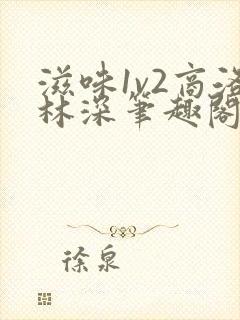 滋味1v2高洛
林深笔趣阁
徐泉